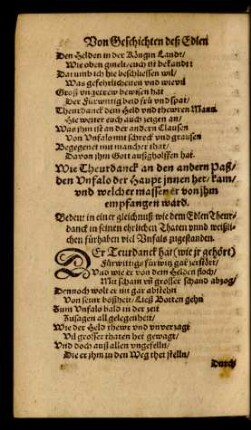 Von Geschichten deß Edlen
Den Helden in der Königin Landt/
Wie oben gmelt/euch ist bekandt:
Darumb ich hie beschliessen wil/
Was gefehrlichkeiten und wie vil
Groß ungetrew bewisen hat
Der Fürwittig beid frü und spat/
Theurdanck dem Held und thewren Mann
Hie weiter euch auch zeigen an/
Was jhm ist an der andern Clausen
Von Unfalo mit schreck und grausen
Begegenet mit mancher that/
Davon jhm Gott außgholffen hat.
Wie Theurdanck an den andern Paß/
den Unfalo der Haupt jnnen het/kam/
und welcher massen er von jhm
empfangen ward.
Bedeut in einer gleichnuß wie dem Edlen Theur-
danck in seinen ehrlichen Thaten unnd weißli-
chen fürhaben vil Unfals zugestanden.
DEr Teurdanck hat (wie jr gehört)
Fürwittigs fürwitz gar zerstört/
Und wie er von dem Helden floch/
Mit scham und grosser schand abzog/
Dennoch wolt er nit gar abstehn
Von seiner boßheit/Ließ Botten gehn
Zum Unfalo bald in der zeit
Zusagen all gelegenheit/
Wie der Held thewr und unverzagt
Vil grosser thaten het gewagt/
Und doch auß allen ungefelln/
Die er jhm in den Weg thet stelln/
Durch